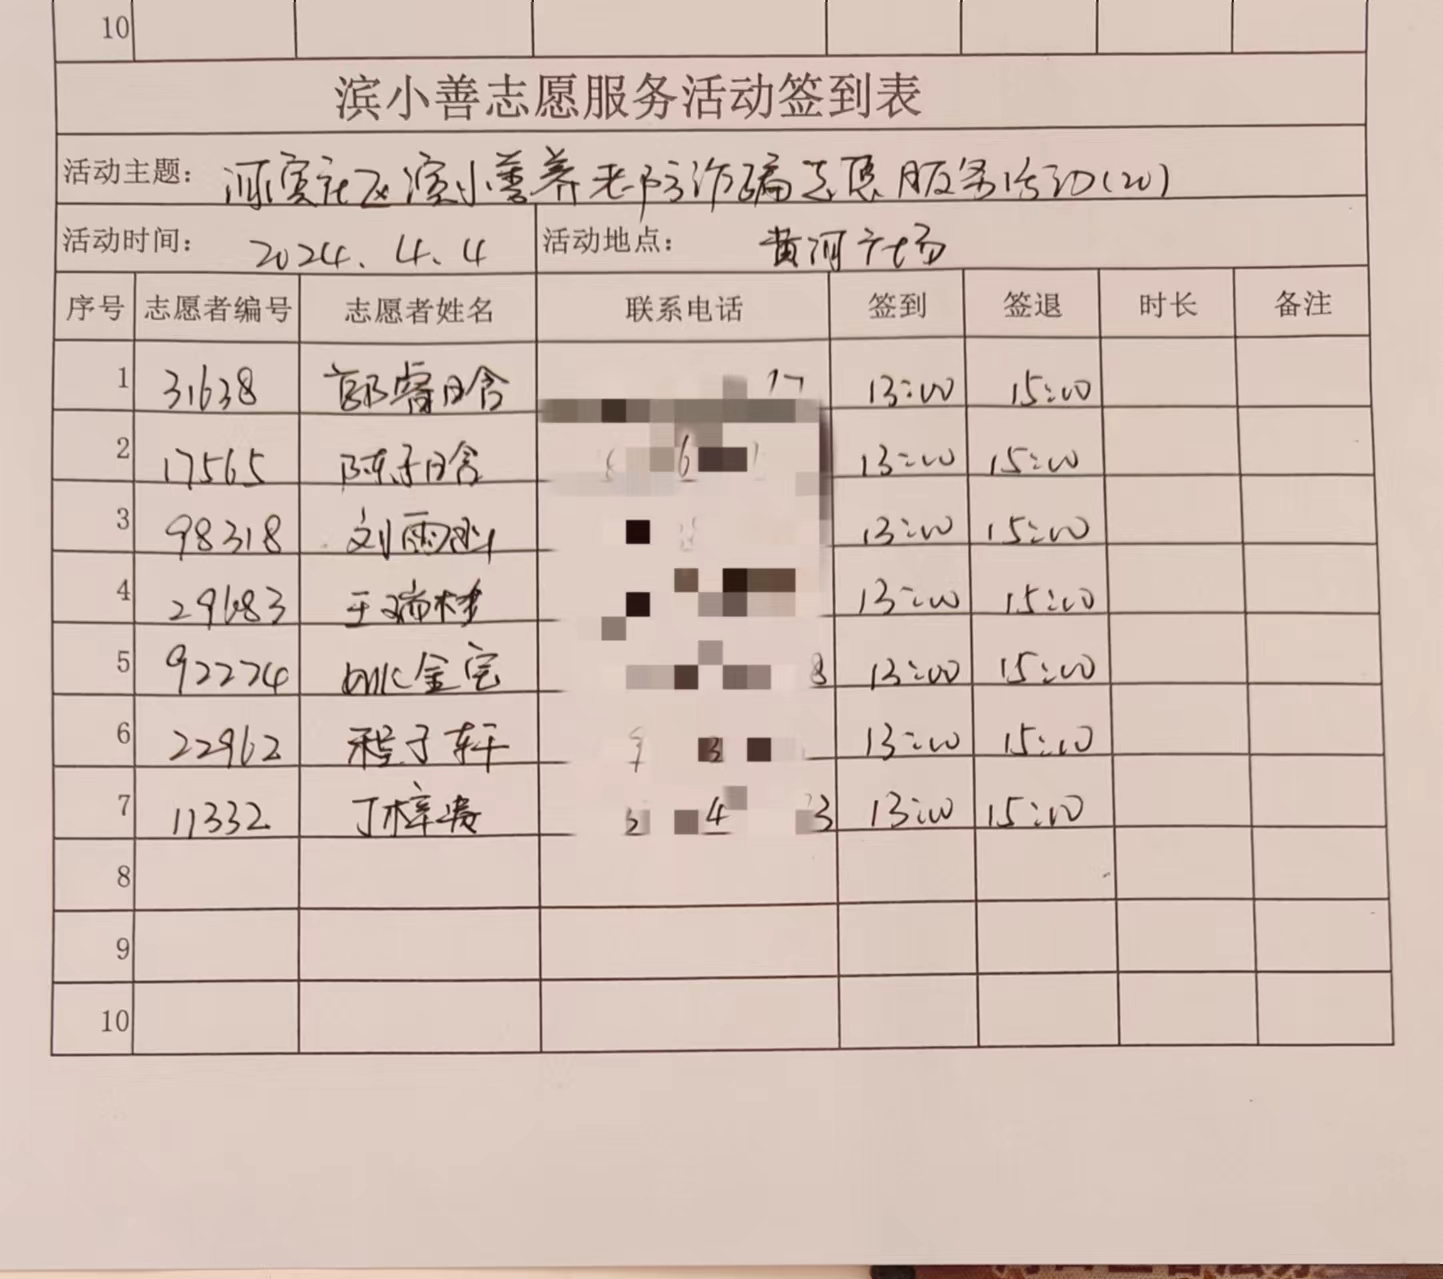 10
滨小善志愿服务活动签到表
活动主题： 河滨社区滨小善养老防诈骗志愿服务活动(20)
活动时间： 2024.4.4 活动地点： 黄河广场
序号 志愿者编号 志愿者姓名 联系电话 签到 签退 时长 备注
1 31638 郭睿晗 13:00 15:00
2 17565 陈子晗 13:00 15:00
3 98318 刘雨 13:00 15:00
4 29683 王瑞梦 13:00 15:00
5 92274 金宝 8 13:00 15:00
6 22962 程子轩 13:00 15:00
7 11332 丁梓 4 3 13:00 15:00
8
9
10